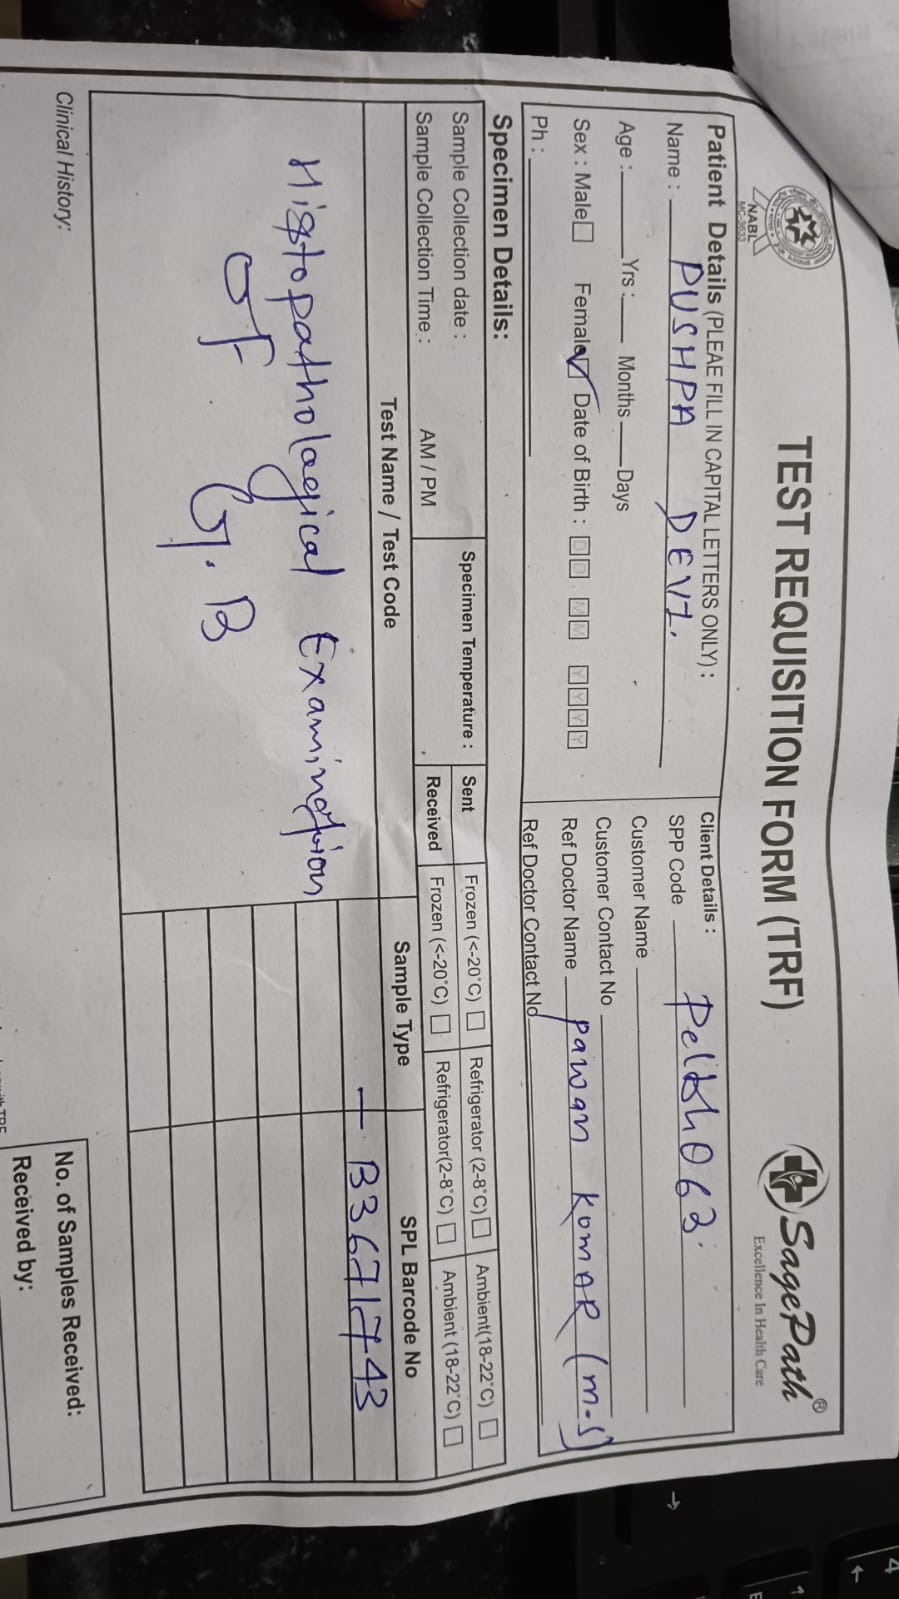 TEST REQUISITION FORM (TRF)
NABL
MC-3633
SagePath®
Excellence In Health Care
Patient Details (PLEAE FILL IN CAPITAL LETTERS ONLY) :
Name : PUSHPA DEVI.
Age : Yrs : Months Days
Sex : Male Female Date of Birth : D D M M Y Y Y Y
Ph :
Client Details :
SPP Code
Customer Name
Customer Contact No
Ref Doctor Name Pawan KomAR (m.s)
Ref Doctor Contact No
Specimen Details:
Sample Collection date :
Sample Collection Time : AM / PM
Specimen Temperature :
Sent Frozen (<-20°C) Refrigerator (2-8°C) Ambient(18-22°C)
Received Frozen (<-20°C) Refrigerator(2-8°C) Ambient (18-22°C)
Test Name / Test Code Sample Type SPL Barcode No
Histopathological Examination — B3671743
of G.B
Clinical History:
No. of Samples Received:
Received by: